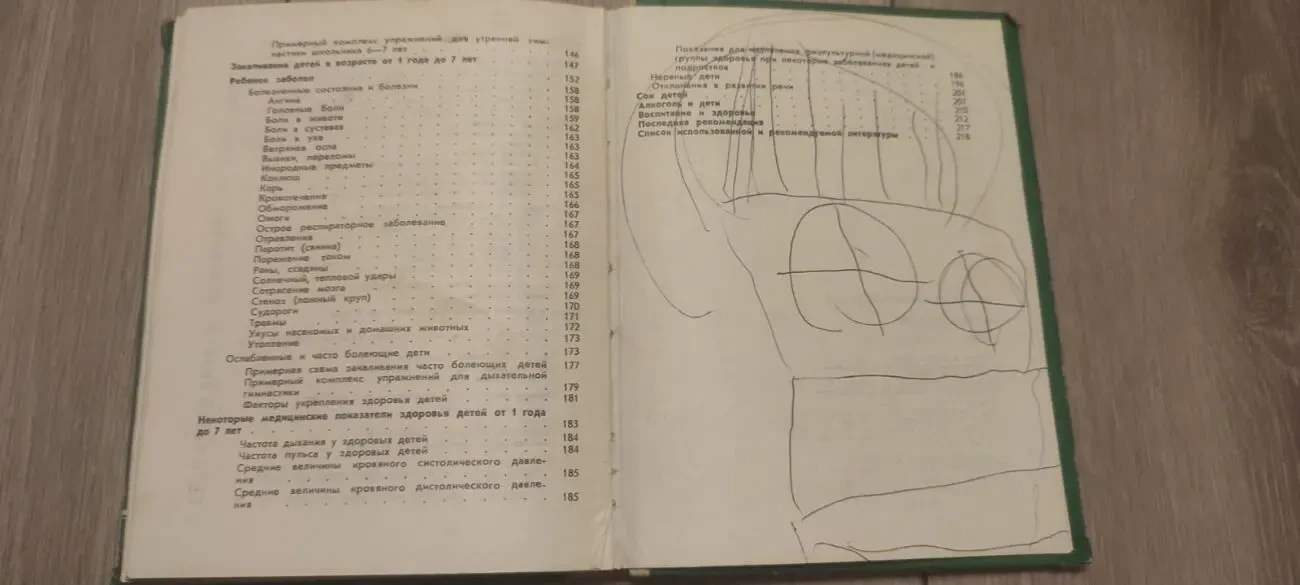 Примерный комплекс упражнений для утренней гим-
настики школьника 6—7 лет 146
Закаливание детей в возрасте от 1 года до 7 лет 147
Ребенок заболел 152
Болезненные состояния и болезни 158
Ангина 158
Головные боли 158
Боли в животе 159
Боли в суставах 162
Боли в ухе 163
Ветряная оспа 163
Вывихи, переломы 163
Инородные предметы 164
Коклюш 165
Корь 165
Кровотечения 165
Обморожение 166
Ожоги 167
Острое респираторное заболевание 167
Отравления 167
Паротит (свинка) 168
Поражение током 168
Раны, ссадины 168
Солнечный, тепловой удары 169
Сотрясение мозга 169
Стеноз (ложный круп) 169
Судороги 170
Травмы 171
Укусы насекомых и домашних животных 172
Утопление 173
Ослабленные и часто болеющие дети 173
Примерная схема закаливания часто болеющих детей 177
Примерный комплекс упражнений для дыхательной
гимнастики 179
Факторы укрепления здоровья детей 181
Некоторые медицинские показатели здоровья детей от 1 года
до 7 лет 183
Частота дыхания у здоровых детей 184
Частота пульса у здоровых детей 184
Средние величины кровяного систолического давле-
ния 185
Средние величины кровяного дистолического давле-
ния 185
Показания для назначения физкультурной (медицинской)
группы здоровья при некоторых заболеваниях детей и
подростков 186
Нервные дети 196
Отклонения в развитии речи
Сон детей
Алкоголь и дети
Воспитание и здоровье 212
Последняя рекомендация 217
Список использованной и рекомендуемой литературы 218